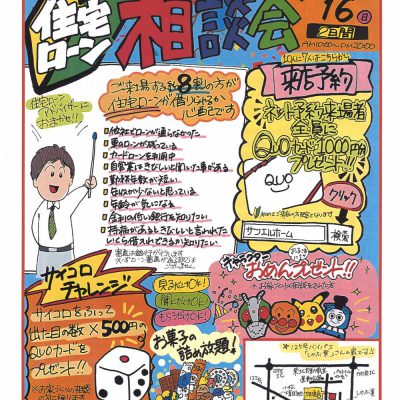 住宅ローン
相談会
16(日)
2日間
AM10:00~PM20:00
住宅ローン
アドバイザーに
おまかせ!!
ご来場する約8割の方が
住宅ローンが借りられるか
心配です
他社でローンが通らなかった
車のローンが残っている
カードローンを利用中
自営業はきびしいと聞いた事がある
勤続年数が短い
年収が少ないと思っている
年齢が気になる
金利の低い銀行を知りたい
持病があるときびしいと言われた
いくら借入れできるか知りたい
来店予約
ネット予約来場者
全員に
QUOカード1000円
プレゼント!!
QUO
クリック
サンエルホーム
検索
サイコロ
チャレンジ
サイコロをふって
出た目の数×500円の
QUOカードを
プレゼント!!
見るだけOK!
聞くだけOK!
もらうだけOK!
お菓子の
詰め放題!
キャラクター
おめんプレゼント!!